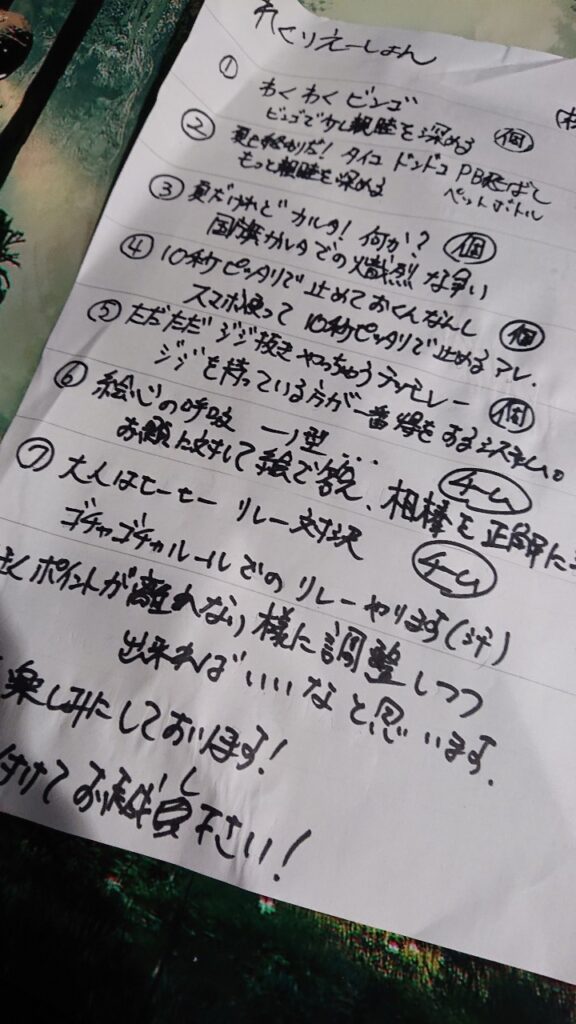 れくりえーしょん
① わくわくビンゴ
ビンゴで少し親睦を深める (個)
② 夏も終わりだ! タイコ ドンドコ PB飛ばし
もっと親睦を深める ペットボトル
③ 夏だけれどカルタ! 何か? (個)
国旗カルタでの熾烈な争い
④ 10秒ピッタリで止めておくんなんし (個)
スマホ使って10秒ピッタリで止めるアレ.
⑤ ただただジジ抜きやっちゅう (個)
ジジを持っている方が一番得をするシステム。
⑥ 絵心の呼吸 一ノ型... (チーム)
お題に対して絵で答え、相棒を正解に
⑦ 大人はヒーヒー リレー対決 (チーム)
ゴチャゴチャルールでのリレーやります(汗)
ポイントが離れない様に調整しつつ
出来ればいいなと思います.
楽しみにしております!
付けてお越し下さい!